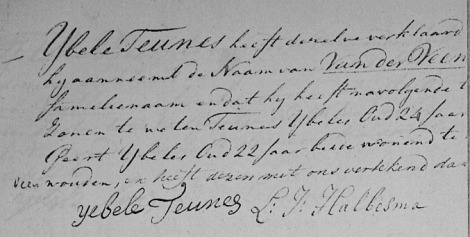 Ybele Teunes heeft dezelve verklaard
hy aanneemt de Naam van Van der Veen
familienaam en dat hy heeft navolgende
Zonen te weten Teunes Ybeles Oud 24 Jaar
Geert Ybeles Oud 22 Jaar beide wonend te
Veenwouden, en heeft dezen met ons vertekend
ijebele Teunes L: J: Halbesma